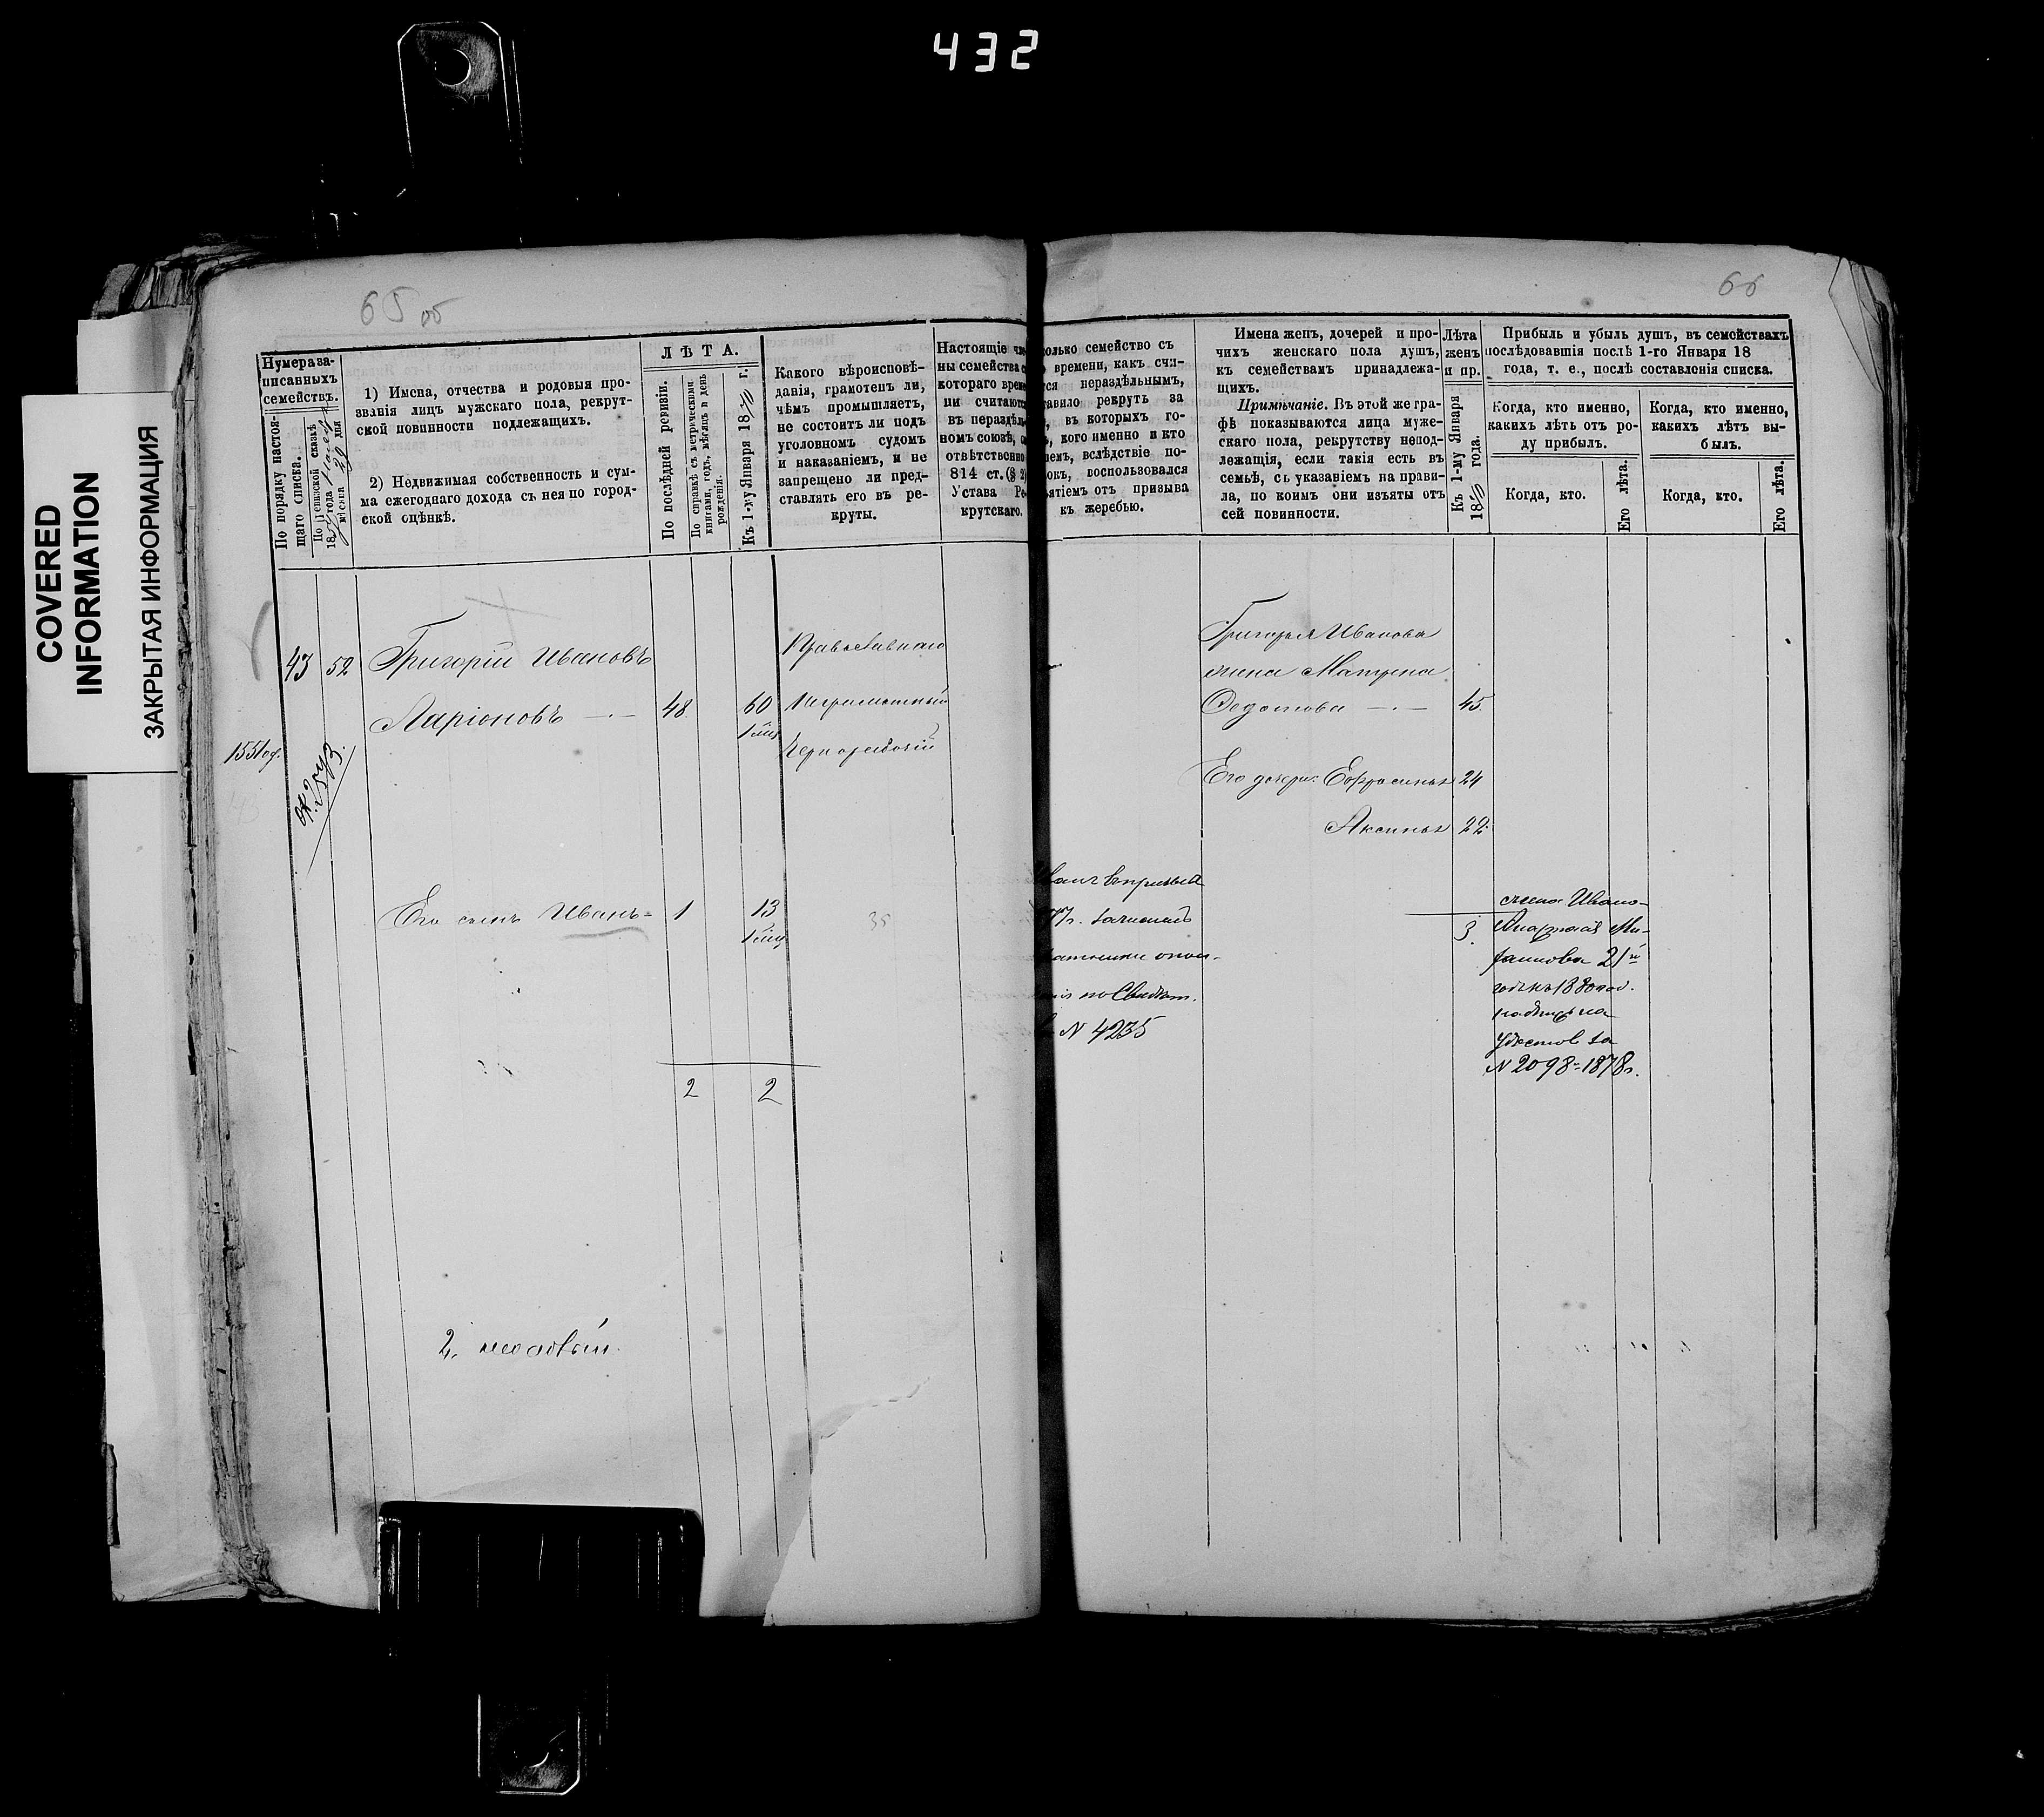 432
COVERED
INFORMATION
ЗАКРЫТАЯ ИНФОРМАЦИЯ
65 об
66
Нумера за-
писанныхъ
семействъ.
По порядку настоя-
щаго списка.
1) Имена, отчества и родовыя про-
званія лицъ мужскаго пола, рекрут-
ской повинности подлежащихъ.
2) Недвижимая собственность и сум-
ма ежегоднаго дохода съ нея по город-
ской оцѣнкѣ.
ЛѢТА.
По послѣдней ревизіи.
По справкѣ съ метрическими
книгами, годъ, мѣсяцъ и день
рожденія.
Къ 1-му Января 18 г.
Какого вѣроисповѣ-
данія, грамотенъ ли,
чѣмъ промышляетъ,
не состоитъ ли подъ
уголовномъ судомъ
и наказаніемъ, и не
запрещено ли пред-
ставлять его въ ре-
круты.
Настоящіе
ны семейства
котораго време
ни считаютс
въ нераздѣль
номъ союзѣ,
отвѣтственно
814 ст. (§ 2)
Устава Ре
крутскаго.
олько семейство съ
времени, какъ счи-
тся нераздѣльнымъ,
тавило рекрутъ за
, въ которыхъ го-
, кого именно и кто
емъ, вслѣдствіе по-
окъ, воспользовался
ятіемъ отъ призыва
къ жеребью.
Имена женъ, дочерей и про-
чихъ женскаго пола душъ,
къ семействамъ принадлежа-
щихъ.
Примѣчаніе. Въ этой же гра-
фѣ показываются лица муже-
скаго пола, рекрутству непод-
лежащія, если такія есть въ
семьѣ, съ указаніемъ на прави-
ла, по коимъ они изъяты отъ
сей повинности.
Лѣта
женъ
и пр.
Къ 1-му Января
18 года.
Прибыль и убыль душъ, въ семействахъ
послѣдовавшія послѣ 1-го Января 18
года, т. е., послѣ составленія списка.
Когда, кто именно,
какихъ лѣтъ отъ ро-
ду прибылъ.
Когда, кто.
Его лѣта.
Когда, кто именно,
какихъ лѣтъ вы-
былъ.
Когда, кто.
Его лѣта.
43 52 Григорій Ивановъ
Ларіоновъ 48 60
Православнаго
неграмотный
Чернорабочій
1551
Его сынъ Иванъ 1 13
35
2 2
Григорья Иванова
жена Матрена
Федотова 45
Его дочери: Евфросинья 24
Аксинья 22
3
N 4235
жена Ивана
N 2098 - 1878г.